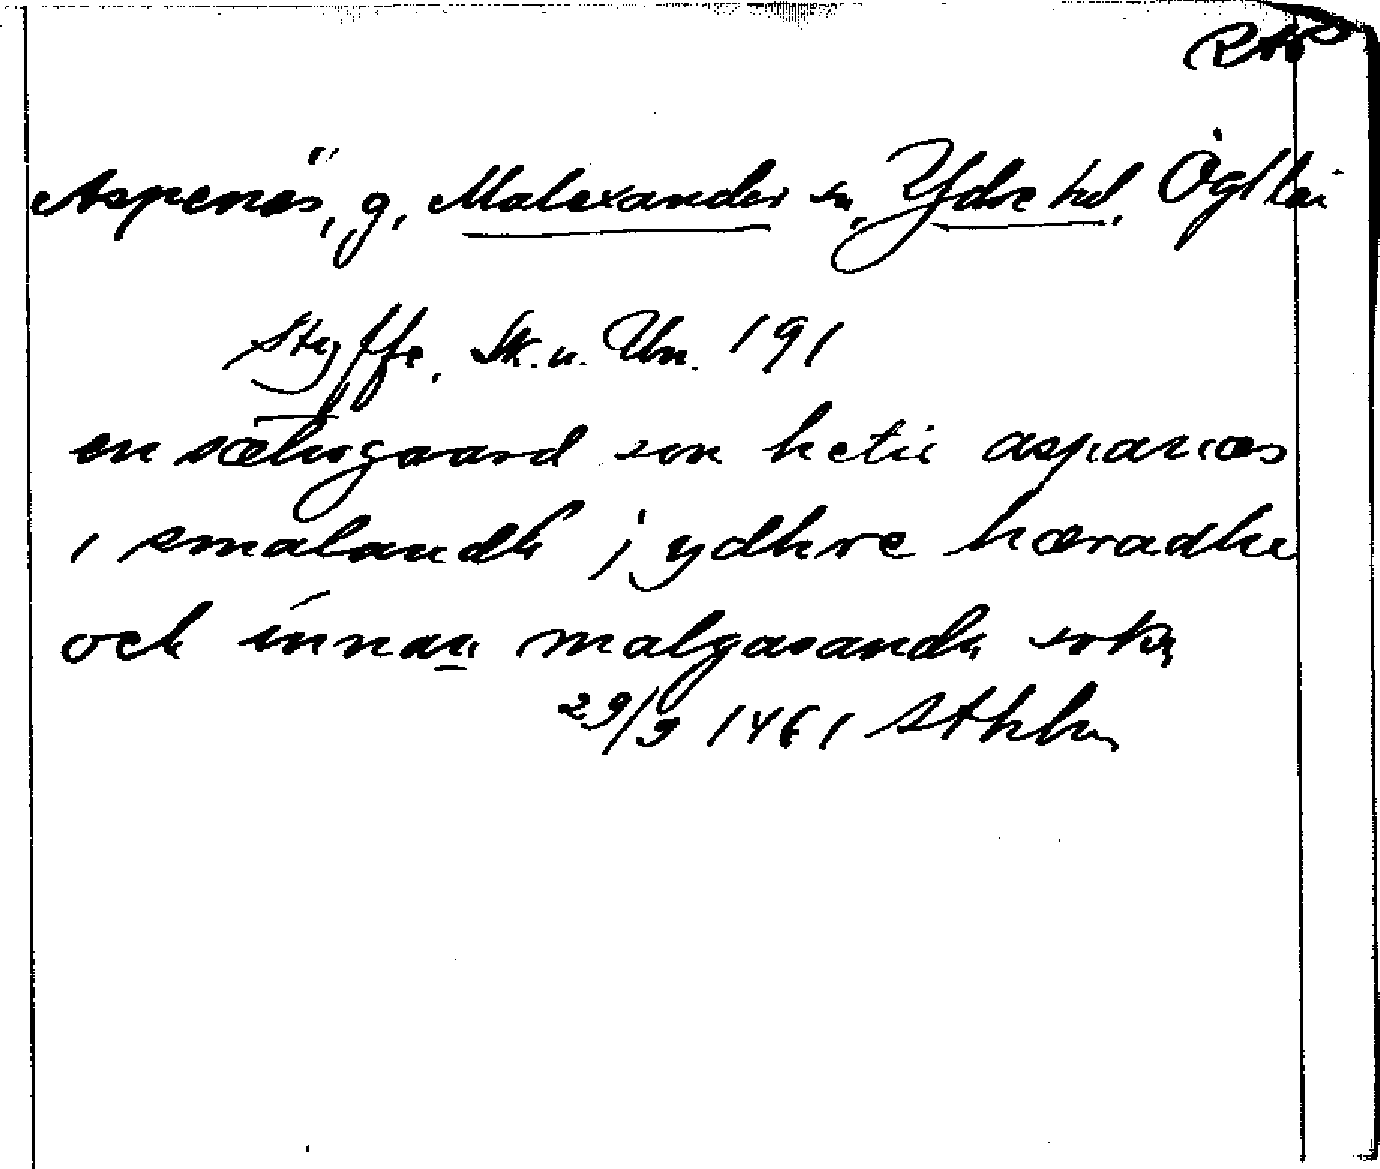 RAP
Aspenäs, g, Malexander sn, Ydre hd, Ögl län
Styffe, Sk. u. Un. 191
en sætugaard som hetir aspanæs
i smalandh j ydhre hæradhe
och innan malgasandh sokn
29/9 1461 Sthlm